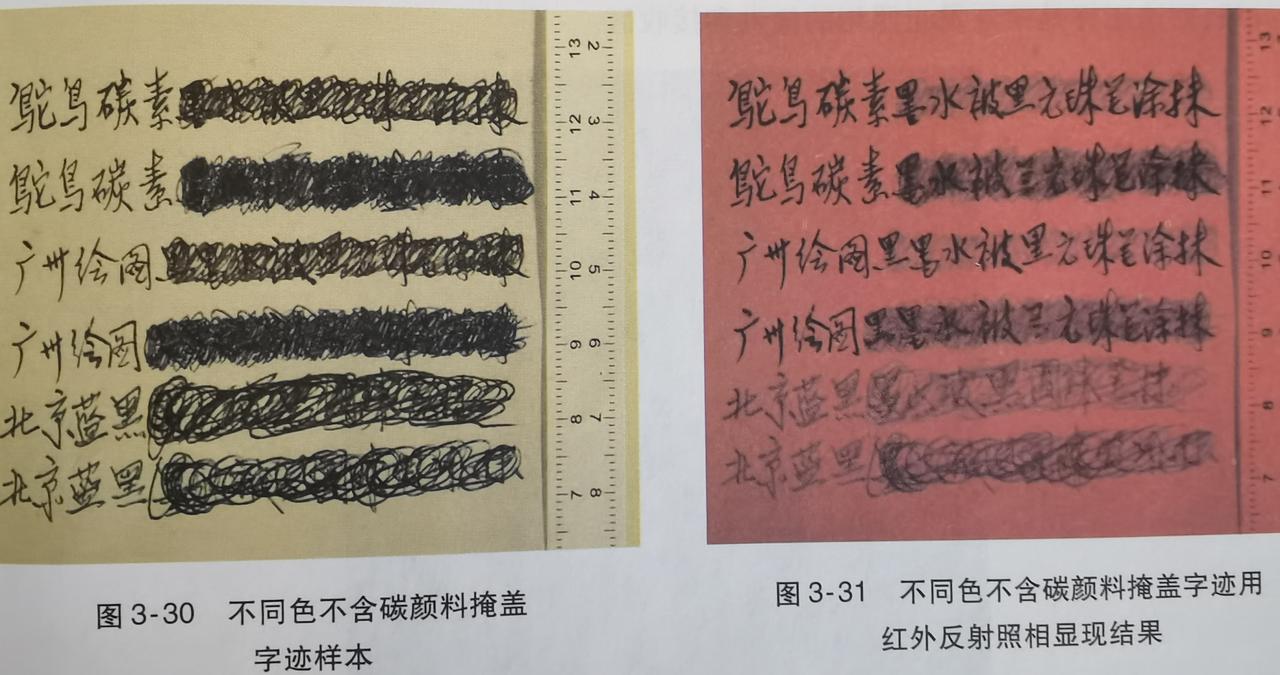 鸵鸟碳素
鸵鸟碳素
广州绘图
广州绘图
北京蓝黑
北京蓝黑
13 2
12 3
11 4
10 5
9 6
8 7
7 8
图3-30 不同色不含碳颜料掩盖
字迹样本
鸵鸟碳素墨水被黑元珠笔涂抹
鸵鸟碳素墨水被兰元珠笔涂抹
广州绘图黑墨水被黑元珠笔涂抹
广州绘图黑墨水被兰元珠笔涂抹
北京蓝黑墨水被黑
北京蓝黑
13
12
11
10
9
8
7
图3-31 不同色不含碳颜料掩盖字迹用
红外反射照相显现结果